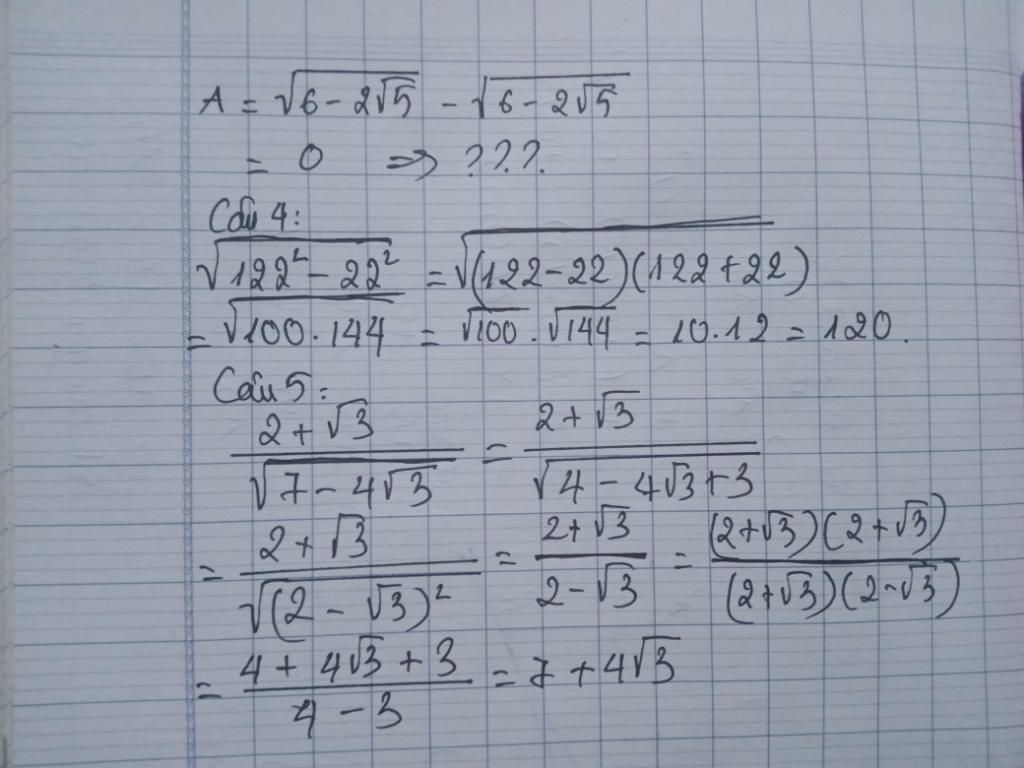 A = √(6 - 2√5) - √(6 - 2√5)
= 0 => ???
Câu 4:
√(122² - 22²) = √((122-22)(122+22))
= √(100.144) = √100.√144 = 10.12 = 120.
Câu 5:
(2 + √3)/√(7 - 4√3) = (2 + √3)/√(4 - 4√3 + 3)
= (2 + √3)/√((2 - √3)²) = (2 + √3)/(2 - √3) = ((2+√3)(2+√3))/((2+√3)(2-√3))
= (4 + 4√3 + 3)/(4 - 3) = 7 + 4√3